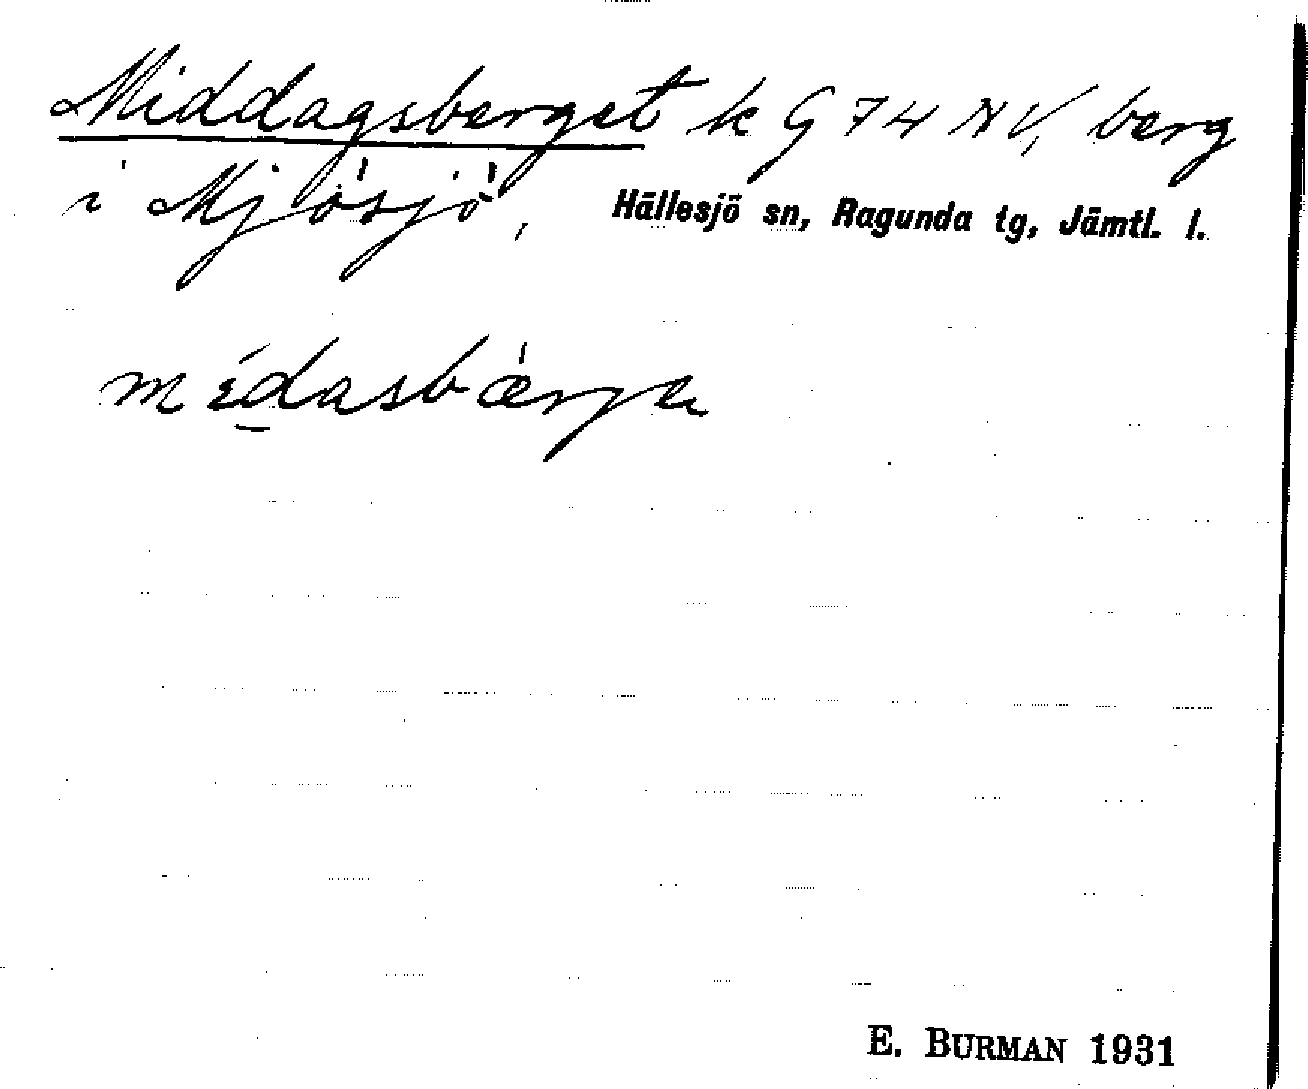 Middagsberget k G 74 NV, berg
i Mjösjö, Hällesjö sn, Ragunda tg, Jämtl. l.
E. BURMAN 1931